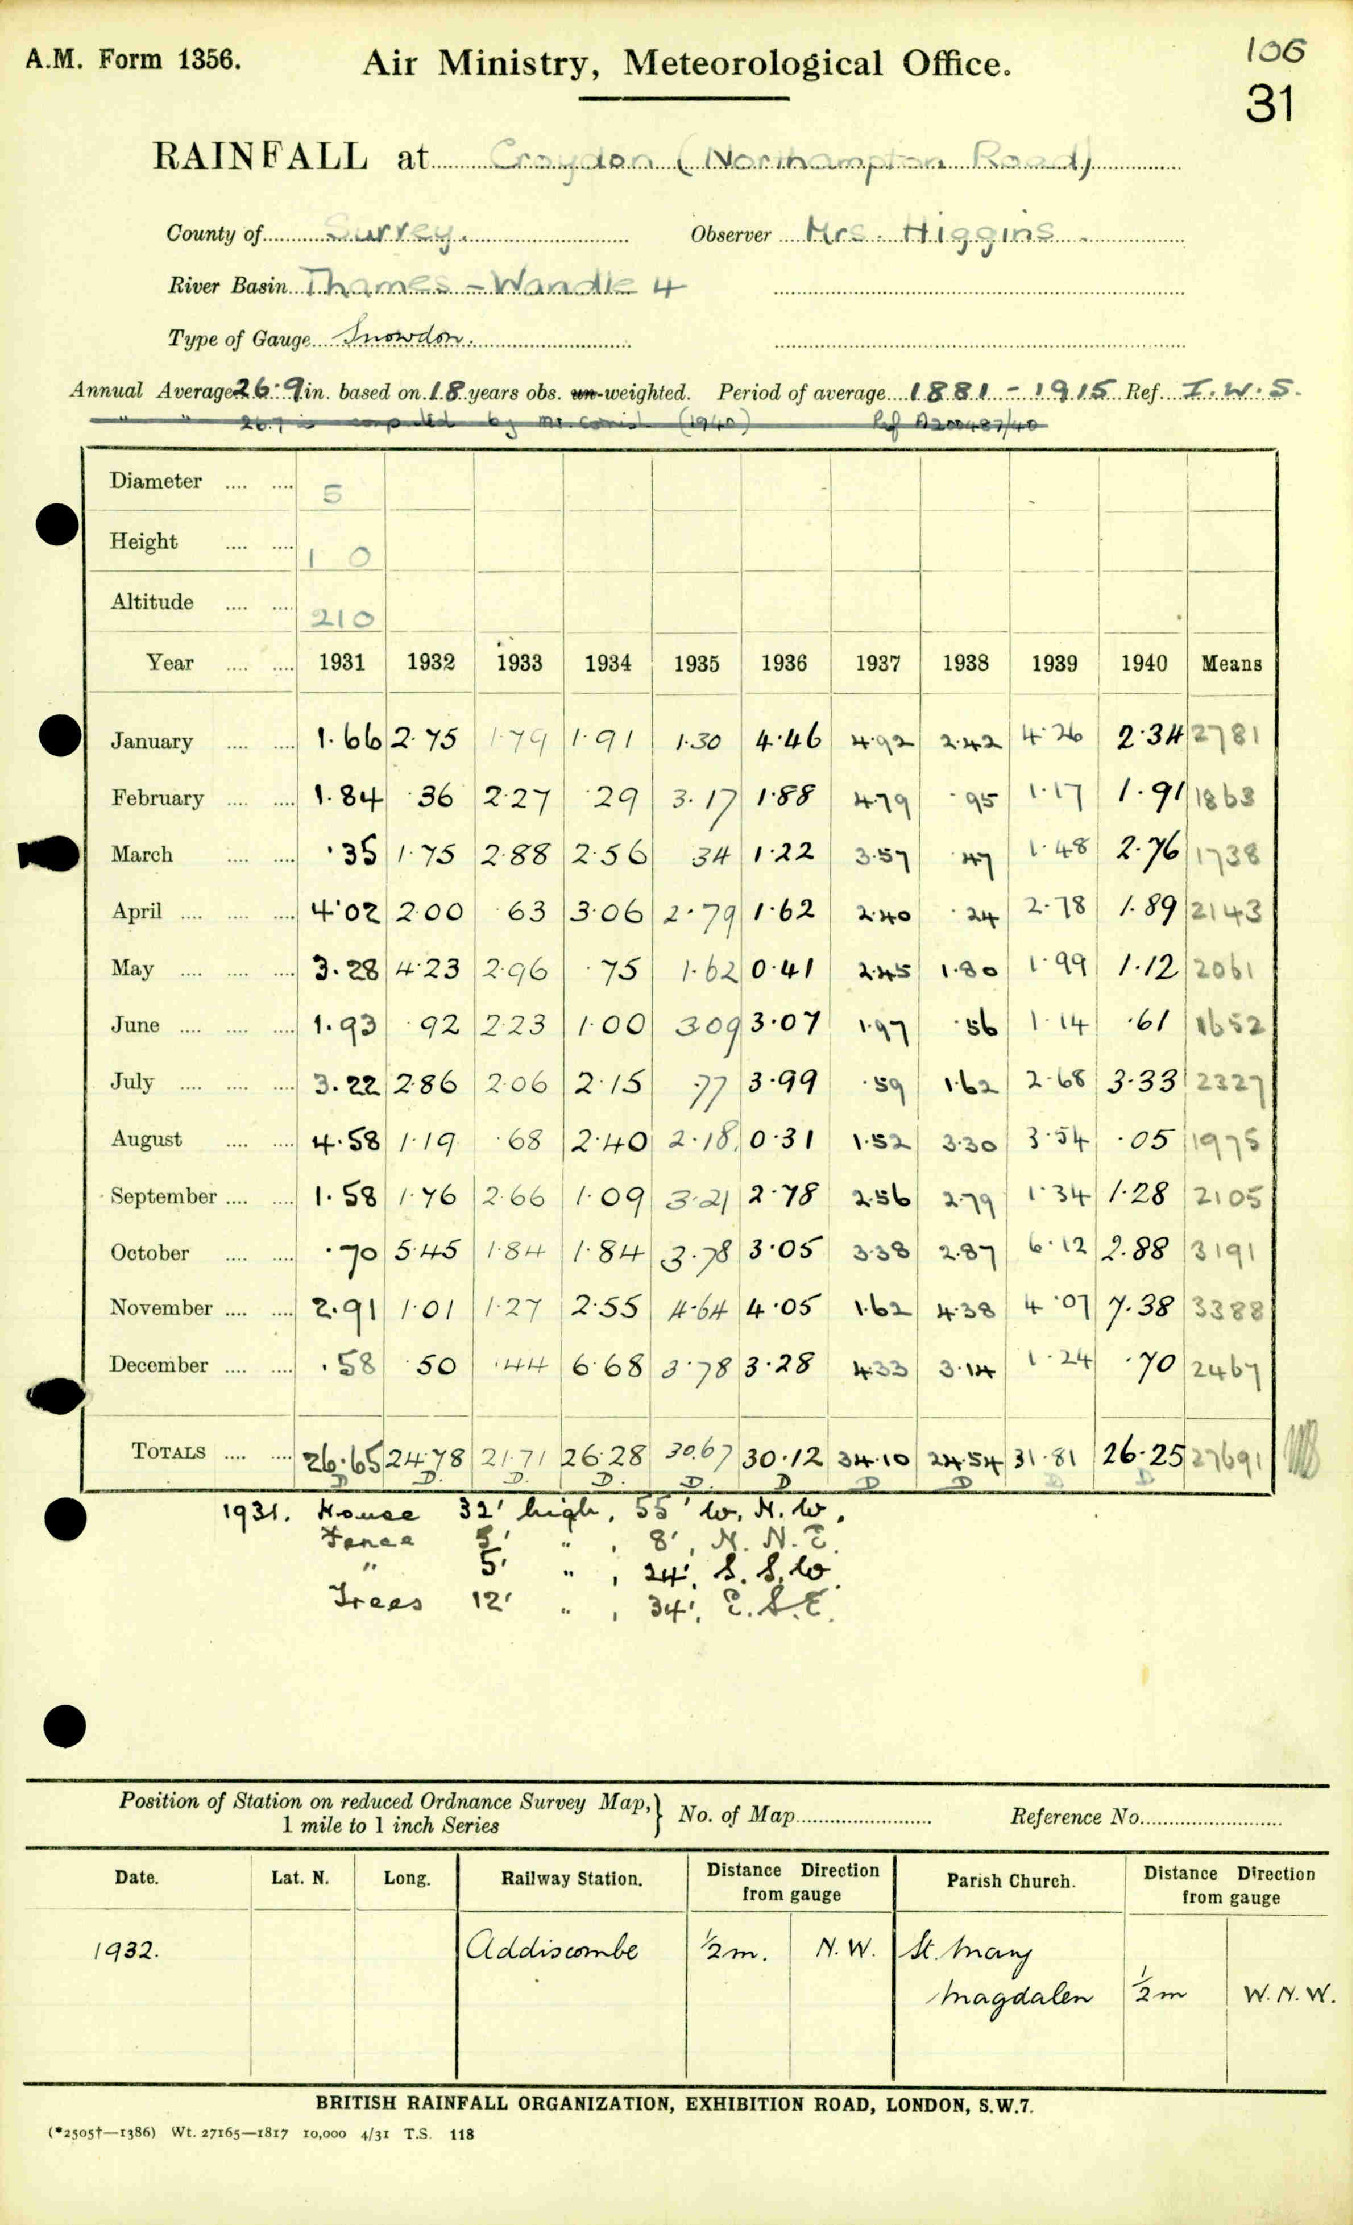 A.M. Form 1356.
Air Ministry, Meteorological Office.
106
31
RAINFALL at Croydon (Northampton Road)
County of Surrey. Observer Mrs. Higgins.
River Basin Thames - Wandle 4
Type of Gauge Snowdon.
Annual Average 26.9 in. based on 18 years obs. un-weighted. Period of average 1881 - 1915 Ref. I.W.S.
" " 26.7 is computed by Mr. (1940) Ref A200487/40
Diameter .... .... 5
Height .... .... 1 0
Altitude .... .... 210
Year .... .... 1931 1932 1933 1934 1935 1936 1937 1938 1939 1940 Means
January .... .... 1.66 2.75 1.79 1.91 1.30 4.46 4.92 2.42 4.26 2.34 2781
February .... .... 1.84 .36 2.27 .29 3.17 1.88 4.79 .95 1.17 1.91 1863
March .... .... .35 1.75 2.88 2.56 34 1.22 3.57 .47 1.48 2.76 1738
April .... .... .... 4.02 2.00 .63 3.06 2.79 1.62 2.40 .24 2.78 1.89 2143
May .... .... .... 3.28 4.23 2.96 .75 1.62 0.41 2.45 1.80 1.99 1.12 2061
June .... .... .... 1.93 .92 2.23 1.00 309 3.07 1.97 .56 1.14 .61 1652
July .... .... .... 3.22 2.86 2.06 2.15 .77 3.99 .59 1.62 2.68 3.33 2327
August .... .... 4.58 1.19 .68 2.40 2.18 0.31 1.52 3.30 3.54 .05 1975
September .... .... 1.58 1.76 2.66 1.09 3.21 2.78 2.56 2.79 1.34 1.28 2105
October .... .... .70 5.45 1.84 1.84 3.78 3.05 3.38 2.87 6.12 2.88 3191
November .... .... 2.91 1.01 1.27 2.55 4.64 4.05 1.62 4.38 4.07 7.38 3388
December .... .... .58 .50 .44 6.68 3.78 3.28 4.33 3.14 1.24 .70 2467
TOTALS .... .... 26.65 24.78 21.71 26.28 30.67 30.12 34.10 24.54 31.81 26.25 27691
D D. D. D. D. D D D D D
1931. House 32' high, 55' W. N. W.
Fence 5' " , 8', N. N. E.
" 5' " , 24', S. S. W.
Trees 12' " , 34', E. S. E.
Position of Station on reduced Ordnance Survey Map, 1 mile to 1 inch Series } No. of Map Reference No.
Date. Lat. N. Long. Railway Station. Distance Direction from gauge Parish Church. Distance Direction from gauge
1932. Addiscombe ½ m. N.W. St. Mary
Magdalen ½ m W.N.W.
BRITISH RAINFALL ORGANIZATION, EXHIBITION ROAD, LONDON, S.W.7.
(*2505†—1386) Wt. 27165—1817 10,000 4/31 T.S. 118